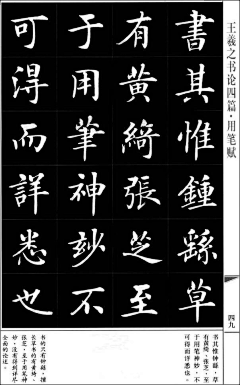 王羲之书论四篇·用笔赋
四九
書其惟鍾繇草
有黃綺張芝至
于用筆神玅不
可淂而詳悉也
书其惟钟繇，草
有黄绮、张芝。至
于用笔神妙，不
可得而详悉也。
书的只有钟繇，擅
长草书的有黄绮、
张芝。至于用笔神
妙，没有得到详尽
全面的论述。